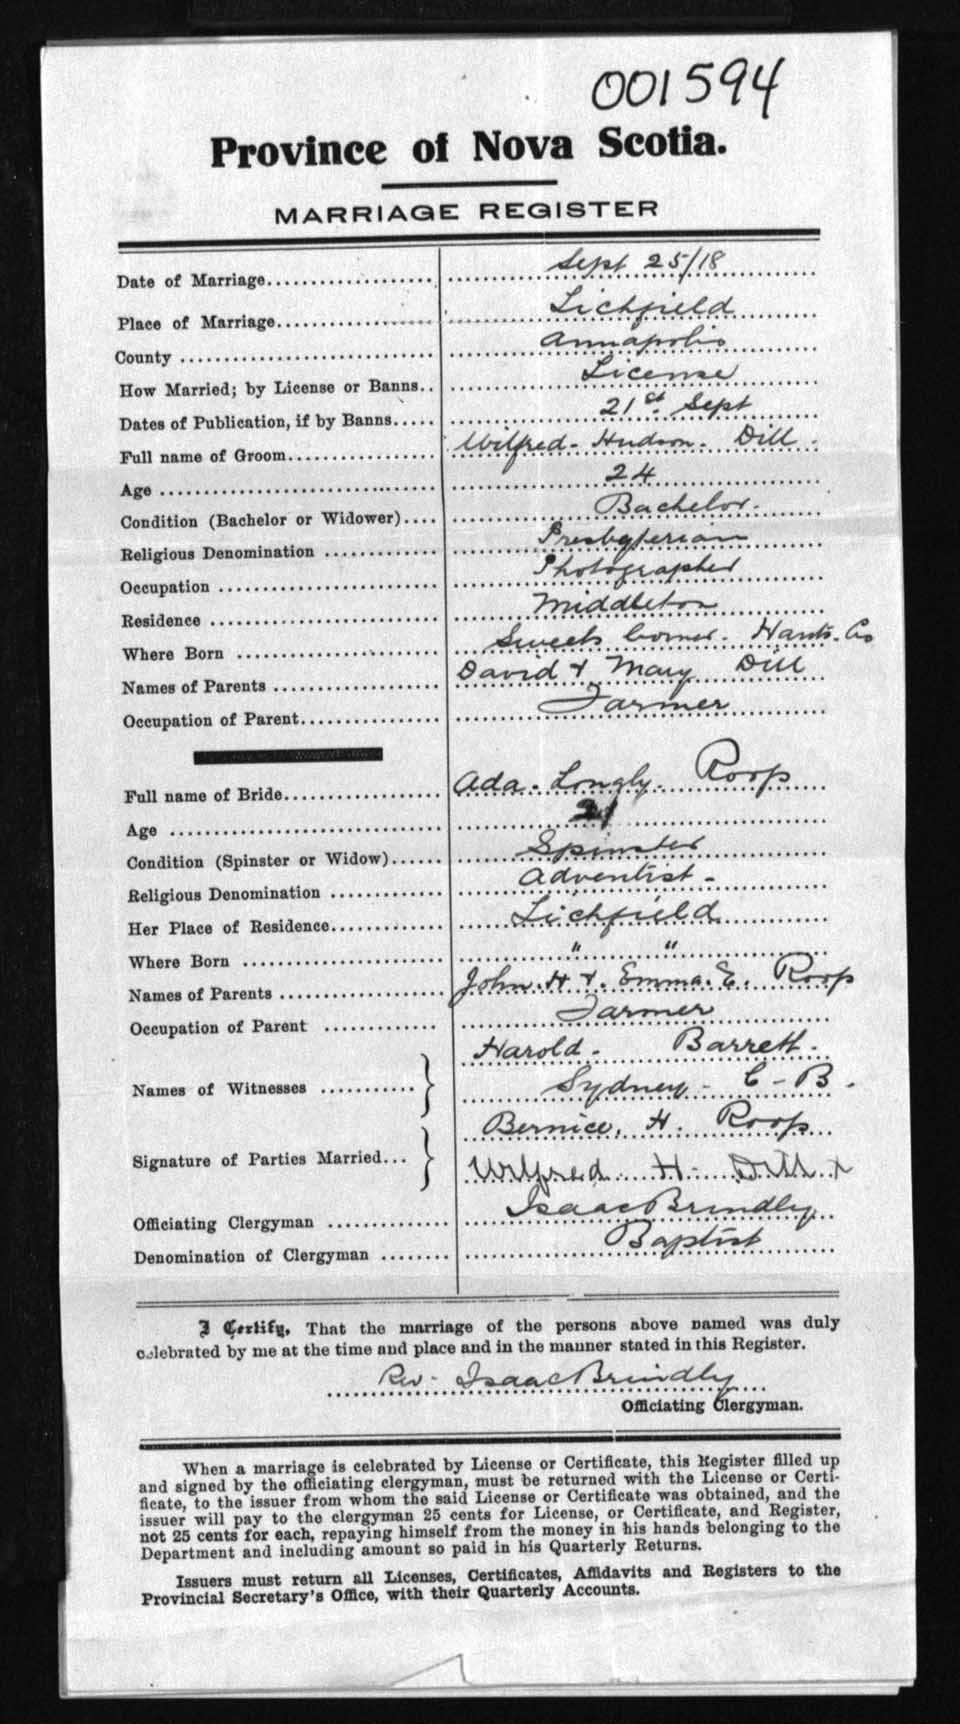 001594
Province of Nova Scotia.
MARRIAGE REGISTER
Date of Marriage Sept 25/18
Place of Marriage Lichfield
County Annapolis
How Married; by License or Banns.. License
Dates of Publication, if by Banns..... 21st Sept
Full name of Groom Wilfred - Hudson - Dill -
Age 24
Condition (Bachelor or Widower).... Bachelor.
Religious Denomination Presbyterian
Occupation Photographer
Residence Middleton
Where Born Sweets Corner. Hants. Co
Names of Parents David & Mary Dill
Occupation of Parent Farmer
Full name of Bride Ada - Longly. Roop
Age 21
Condition (Spinster or Widow)...... Spinster
Religious Denomination Adventist -
Her Place of Residence Lichfield
Where Born " "
Names of Parents John. H &. Emma. E. Roop
Occupation of Parent Farmer
Harold - Barrett -
Names of Witnesses } Sydney - C - B.
Bernice, H. Roop
Signature of Parties Married... } Wilfred H - Dill
Officiating Clergyman Isaac Brindley
Denomination of Clergyman Baptist
I Certify, That the marriage of the persons above named was duly
celebrated by me at the time and place and in the manner stated in this Register.
Rev - Isaac Brindley
Officiating Clergyman.
When a marriage is celebrated by License or Certificate, this Register filled up
and signed by the officiating clergyman, must be returned with the License or Certi-
ficate, to the issuer from whom the said License or Certificate was obtained, and the
issuer will pay to the clergyman 25 cents for License, or Certificate, and Register,
not 25 cents for each, repaying himself from the money in his hands belonging to the
Department and including amount so paid in his Quarterly Returns.
Issuers must return all Licenses, Certificates, Affidavits and Registers to the
Provincial Secretary's Office, with their Quarterly Accounts.